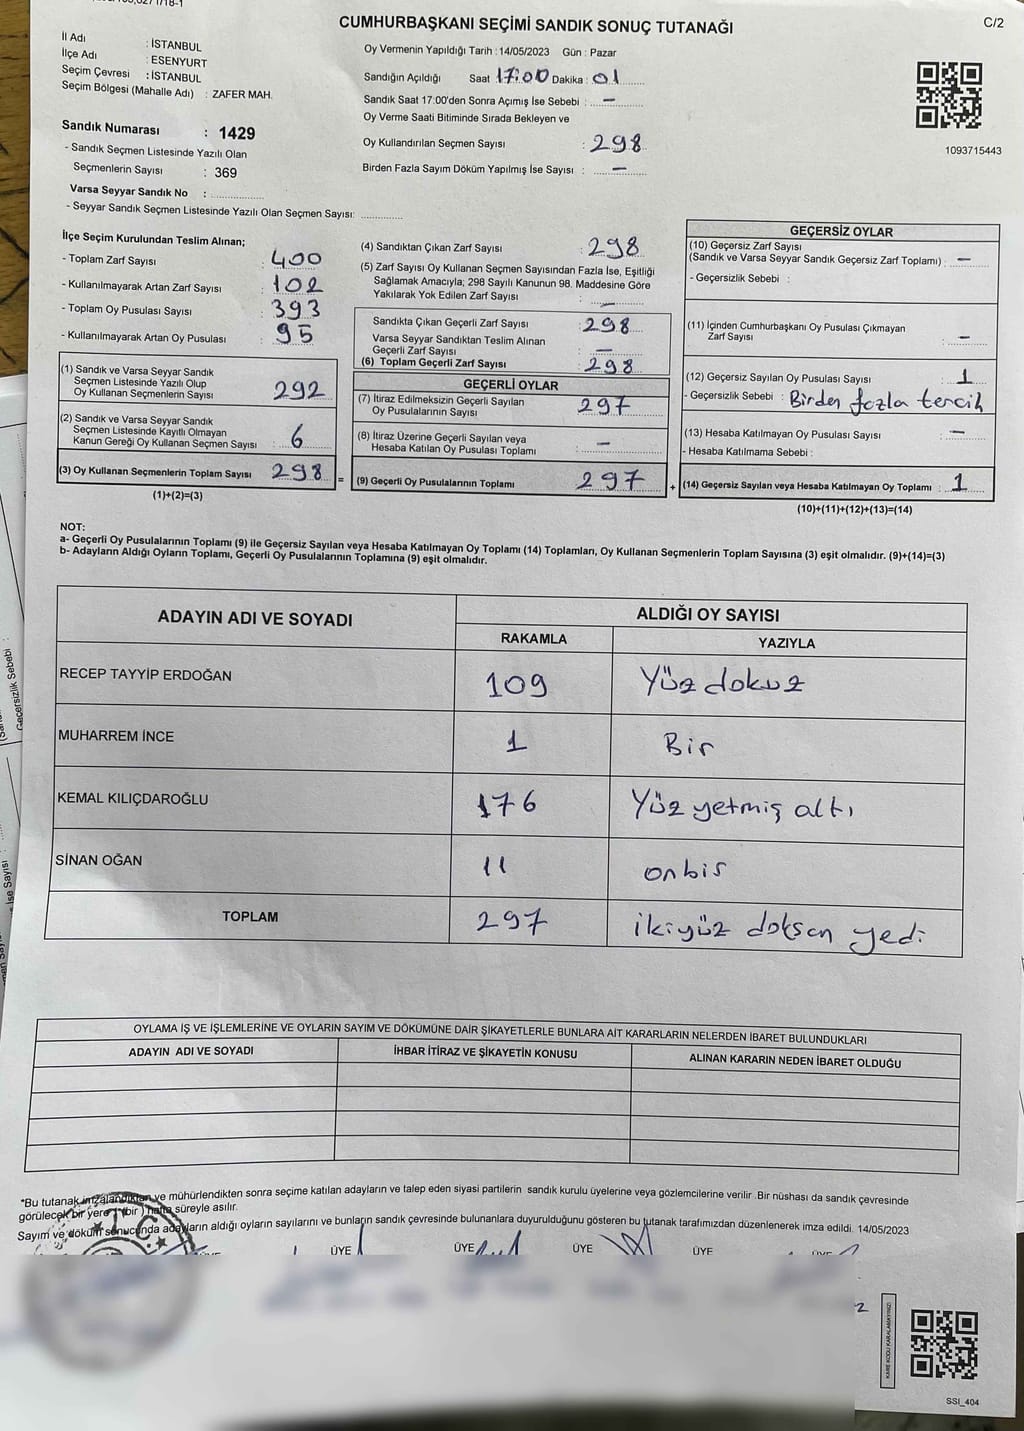 CUMHURBAŞKANI SEÇİMİ SANDIK SONUÇ TUTANAĞI
C/2
İl Adı : İSTANBUL
İlçe Adı : ESENYURT
Seçim Çevresi : İSTANBUL
Seçim Bölgesi (Mahalle Adı) : ZAFER MAH.
Oy Vermenin Yapıldığı Tarih : 14/05/2023 Gün : Pazar
Sandığın Açıldığı Saat 17:00 Dakika : 01
Sandık Saat 17:00'den Sonra Açımış İse Sebebi : —
Oy Verme Saati Bitiminde Sırada Bekleyen ve
Oy Kullandırılan Seçmen Sayısı : 298
Birden Fazla Sayım Döküm Yapılmış İse Sayısı : —
1093715443
Sandık Numarası : 1429
- Sandık Seçmen Listesinde Yazılı Olan
Seçmenlerin Sayısı : 369
Varsa Seyyar Sandık No : ....................
- Seyyar Sandık Seçmen Listesinde Yazılı Olan Seçmen Sayısı: ..............
İlçe Seçim Kurulundan Teslim Alınan;
- Toplam Zarf Sayısı : 400
- Kullanılmayarak Artan Zarf Sayısı : 102
- Toplam Oy Pusulası Sayısı : 393
- Kullanılmayarak Artan Oy Pusulası : 95
(1) Sandık ve Varsa Seyyar Sandık
Seçmen Listesinde Yazılı Olup
Oy Kullanan Seçmenlerin Sayısı : 292
(2) Sandık ve Varsa Seyyar Sandık
Seçmen Listesinde Kayıtlı Olmayan
Kanun Gereği Oy Kullanan Seçmen Sayısı : 6
(3) Oy Kullanan Seçmenlerin Toplam Sayısı 298
(1)+(2)=(3)
(4) Sandıktan Çıkan Zarf Sayısı : 298
(5) Zarf Sayısı Oy Kullanan Seçmen Sayısından Fazla İse, Eşitliği
Sağlamak Amacıyla; 298 Sayılı Kanunun 98. Maddesine Göre
Yakılarak Yok Edilen Zarf Sayısı : —
Sandıkta Çıkan Geçerli Zarf Sayısı : 298
Varsa Seyyar Sandıktan Teslim Alınan
Geçerli Zarf Sayısı : —
(6) Toplam Geçerli Zarf Sayısı : 298
GEÇERLİ OYLAR
(7) İtiraz Edilmeksizin Geçerli Sayılan
Oy Pusulalarının Sayısı : 297
(8) İtiraz Üzerine Geçerli Sayılan veya
Hesaba Katılan Oy Pusulası Toplamı : —
= (9) Geçerli Oy Pusulalarının Toplamı 297
GEÇERSİZ OYLAR
(10) Geçersiz Zarf Sayısı
(Sandık ve Varsa Seyyar Sandık Geçersiz Zarf Toplamı) : —
- Geçersizlik Sebebi :
(11) İçinden Cumhurbaşkanı Oy Pusulası Çıkmayan
Zarf Sayısı : —
(12) Geçersiz Sayılan Oy Pusulası Sayısı : 1
- Geçersizlik Sebebi : Birden fazla tercih
(13) Hesaba Katılmayan Oy Pusulası Sayısı : —
- Hesaba Katılmama Sebebi :
+ (14) Geçersiz Sayılan veya Hesaba Katılmayan Oy Toplamı : 1
(10)+(11)+(12)+(13)=(14)
NOT:
a- Geçerli Oy Pusulalarının Toplamı (9) ile Geçersiz Sayılan veya Hesaba Katılmayan Oy Toplamı (14) Toplamları, Oy Kullanan Seçmenlerin Toplam Sayısına (3) eşit olmalıdır. (9)+(14)=(3)
b- Adayların Aldığı Oyların Toplamı, Geçerli Oy Pusulalarının Toplamına (9) eşit olmalıdır.
ADAYIN ADI VE SOYADI
ALDIĞI OY SAYISI
RAKAMLA YAZIYLA
RECEP TAYYİP ERDOĞAN 109 Yüz dokuz
MUHARREM İNCE 1 Bir
KEMAL KILIÇDAROĞLU 176 Yüz yetmiş altı
SİNAN OĞAN 11 onbir
TOPLAM 297 ikiyüz doksan yedi
OYLAMA İŞ VE İŞLEMLERİNE VE OYLARIN SAYIM VE DÖKÜMÜNE DAİR ŞİKAYETLERLE BUNLARA AİT KARARLARIN NELERDEN İBARET BULUNDUKLARI
ADAYIN ADI VE SOYADI İHBAR İTİRAZ VE ŞİKAYETİN KONUSU ALINAN KARARIN NEDEN İBARET OLDUĞU
*Bu tutanak imzalandıktan ve mühürlendikten sonra seçime katılan adayların ve talep eden siyasi partilerin sandık kurulu üyelerine veya gözlemcilerine verilir. Bir nüshası da sandık çevresinde
görülecek bir yere 1 (bir) hafta süreyle asılır.
Sayım ve döküm sonucunda adayların aldığı oyların sayılarını ve bunların sandık çevresinde bulunanlara duyurulduğunu gösteren bu tutanak tarafımızdan düzenlenerek imza edildi. 14/05/2023
T.C.
ÜYE ÜYE ÜYE ÜYE
KARE KODU KARALAMAYINIZ!
SSI_404
Geçersizlik Sebebi